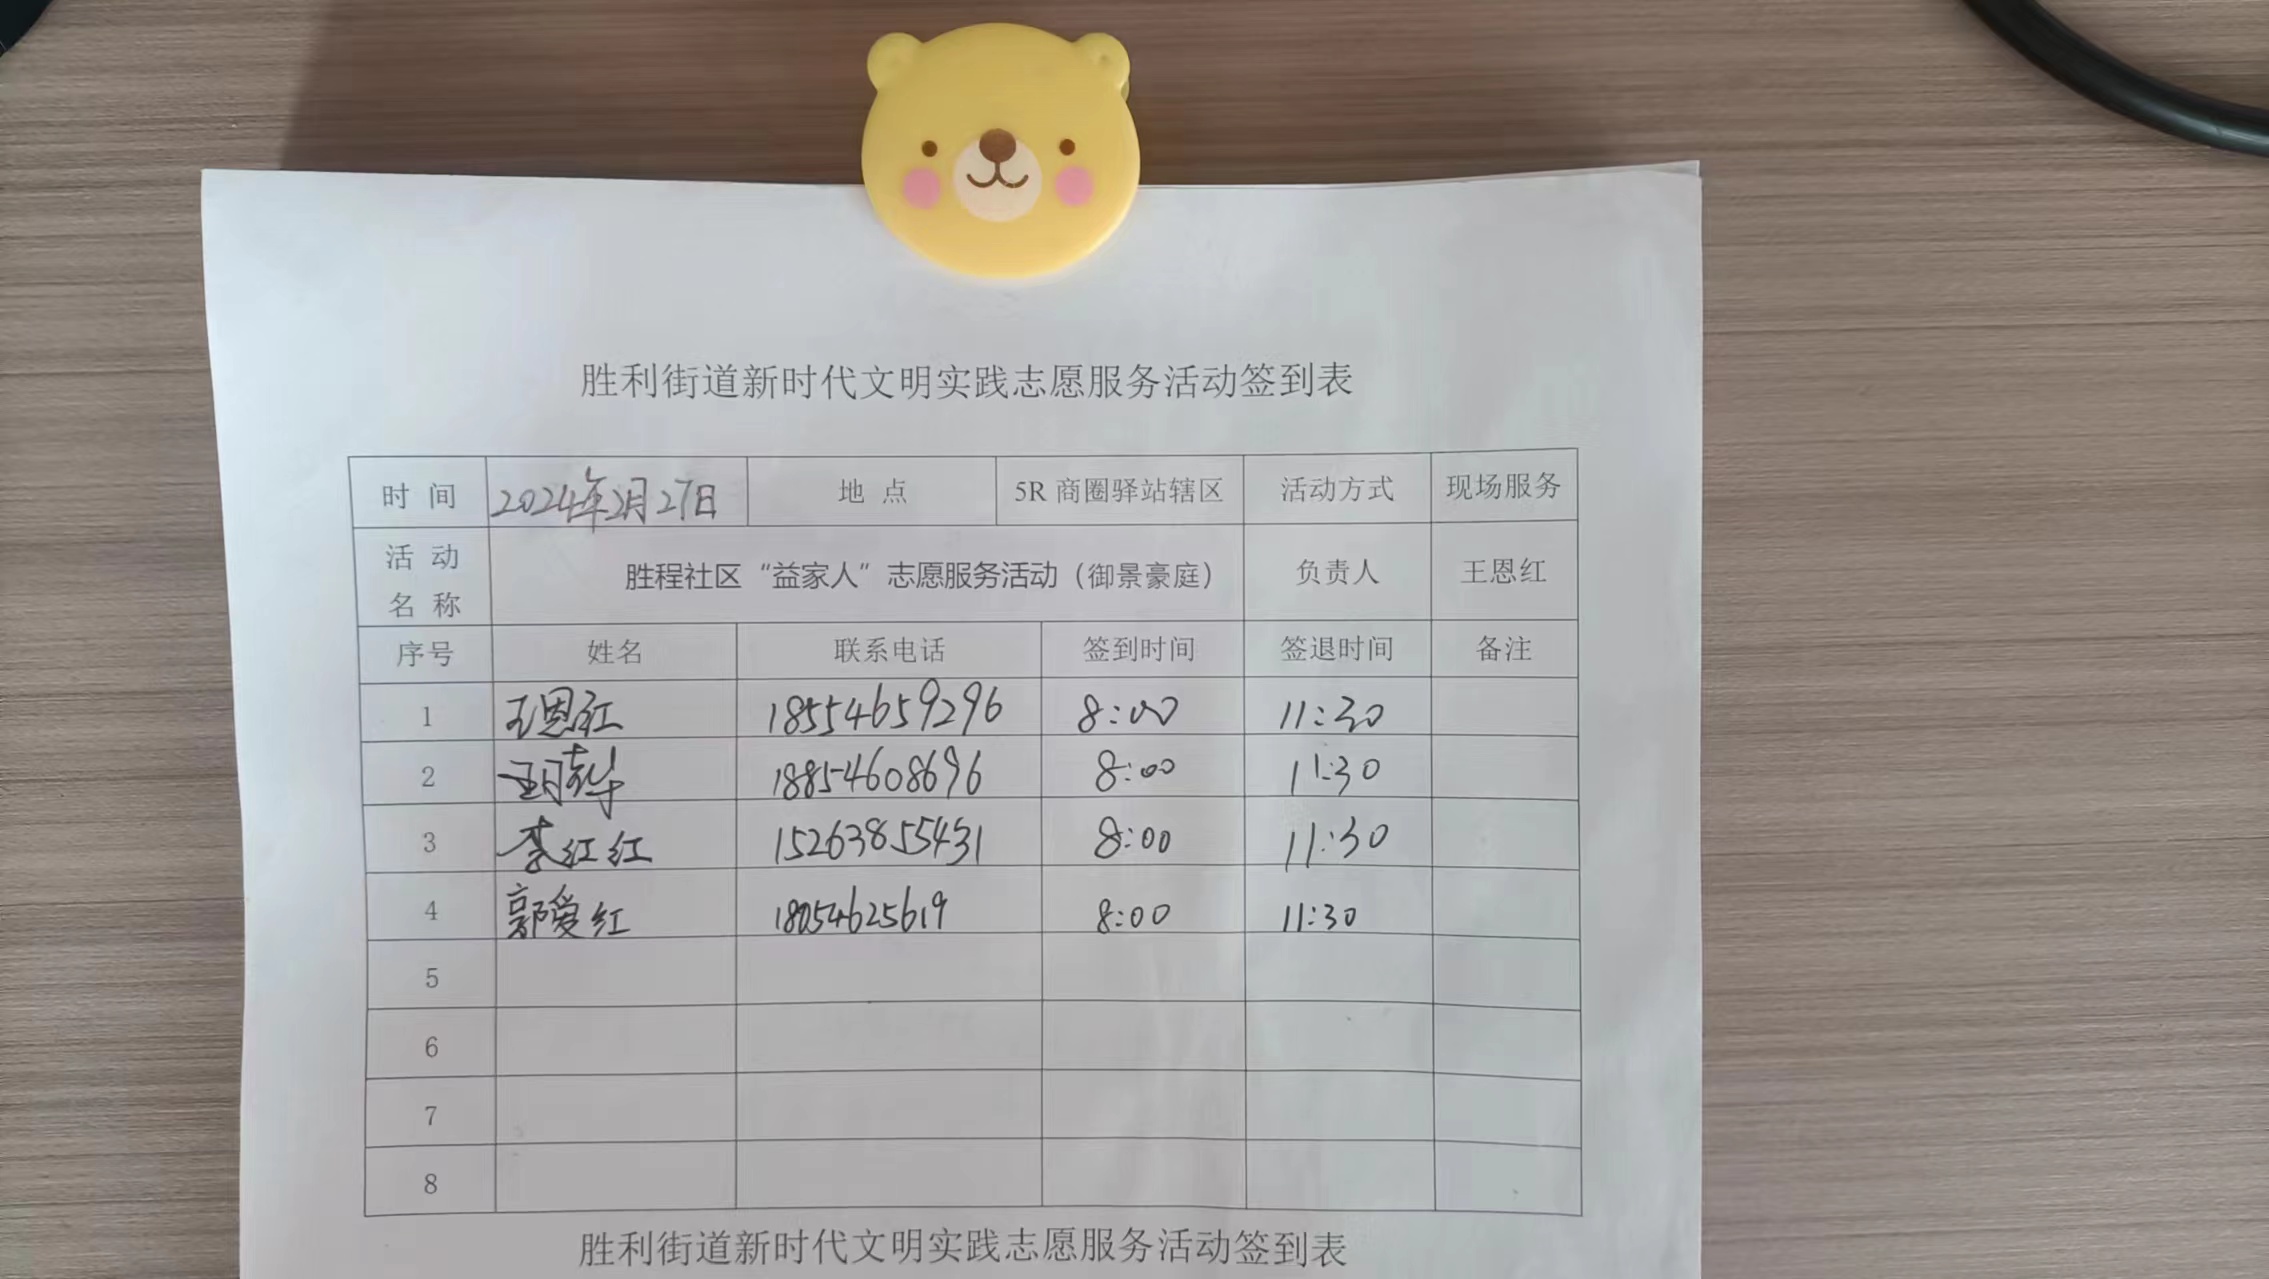 胜利街道新时代文明实践志愿服务活动签到表
时 间 2024年2月27日 地 点 5R 商圈驿站辖区 活动方式 现场服务
活 动 名 称 胜程社区“益家人”志愿服务活动（御景豪庭） 负责人 王恩红
序号 姓名 联系电话 签到时间 签退时间 备注
1 王恩红 18554659296 8:00 11:30
2 18854608696 8:00 11:30
3 李红红 15263855431 8:00 11:30
4 郭爱红 18054625619 8:00 11:30
5
6
7
8
胜利街道新时代文明实践志愿服务活动签到表